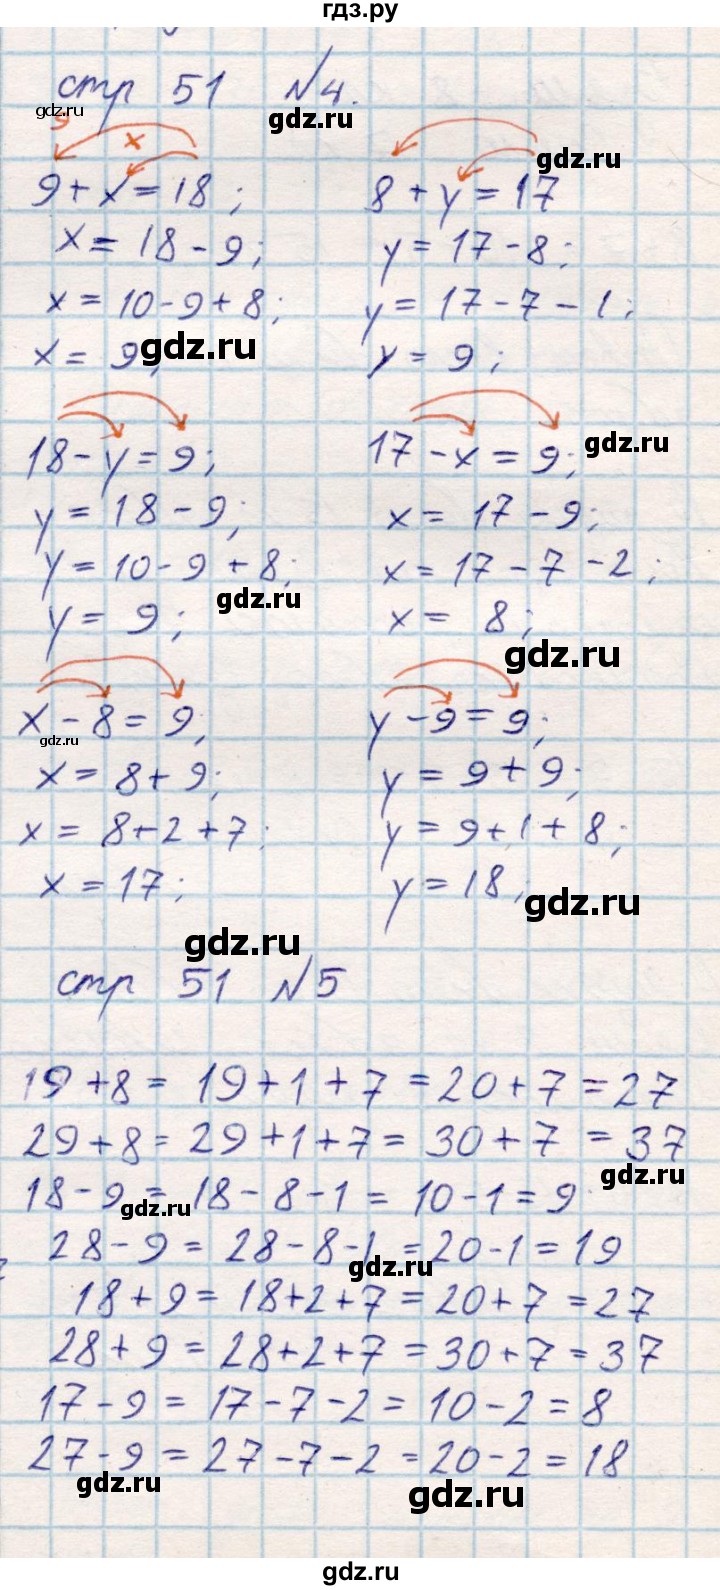 гдз.ру
стр 51 №4.
gdz.ru
gdz.ru
9 x
gdz.ru
9 + x = 18; 8 + y = 17
x = 18 - 9; y = 17 - 8;
x = 10 - 9 + 8; y = 17 - 7 - 1;
x = 9; y = 9;
gdz.ru
18 - y = 9; 17 - x = 9;
gdz.ru
y = 18 - 9; x = 17 - 9;
y = 10 - 9 + 8; x = 17 - 7 - 2;
gdz.ru
y = 9; x = 8;
gdz.ru
x - 8 = 9; y - 9 = 9;
gdz.ru
x = 8 + 9; y = 9 + 9;
x = 8 + 2 + 7; y = 9 + 1 + 8;
x = 17; y = 18;
gdz.ru
gdz.ru
стр 51 №5
19 + 8 = 19 + 1 + 7 = 20 + 7 = 27
29 + 8 = 29 + 1 + 7 = 30 + 7 = 37
gdz.ru
18 - 9 = 18 - 8 - 1 = 10 - 1 = 9
gdz.ru
28 - 9 = 28 - 8 - 1 = 20 - 1 = 19
gdz.ru
18 + 9 = 18 + 2 + 7 = 20 + 7 = 27
28 + 9 = 28 + 2 + 7 = 30 + 7 = 37
17 - 9 = 17 - 7 - 2 = 10 - 2 = 8
27 - 9 = 27 - 7 - 2 = 20 - 2 = 18
gdz.ru
gdz.ru
gdz.ru